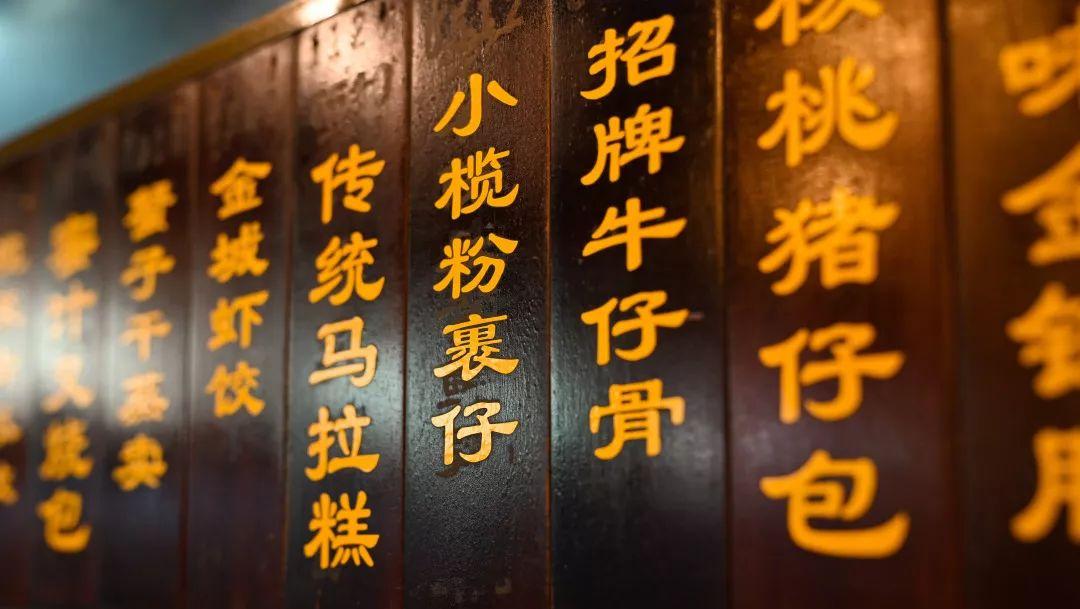 味金钱
核桃猪仔包
招牌牛仔骨
小榄粉裹仔
传统马拉糕
金城虾饺
蟹子干蒸卖
汁叉烧包